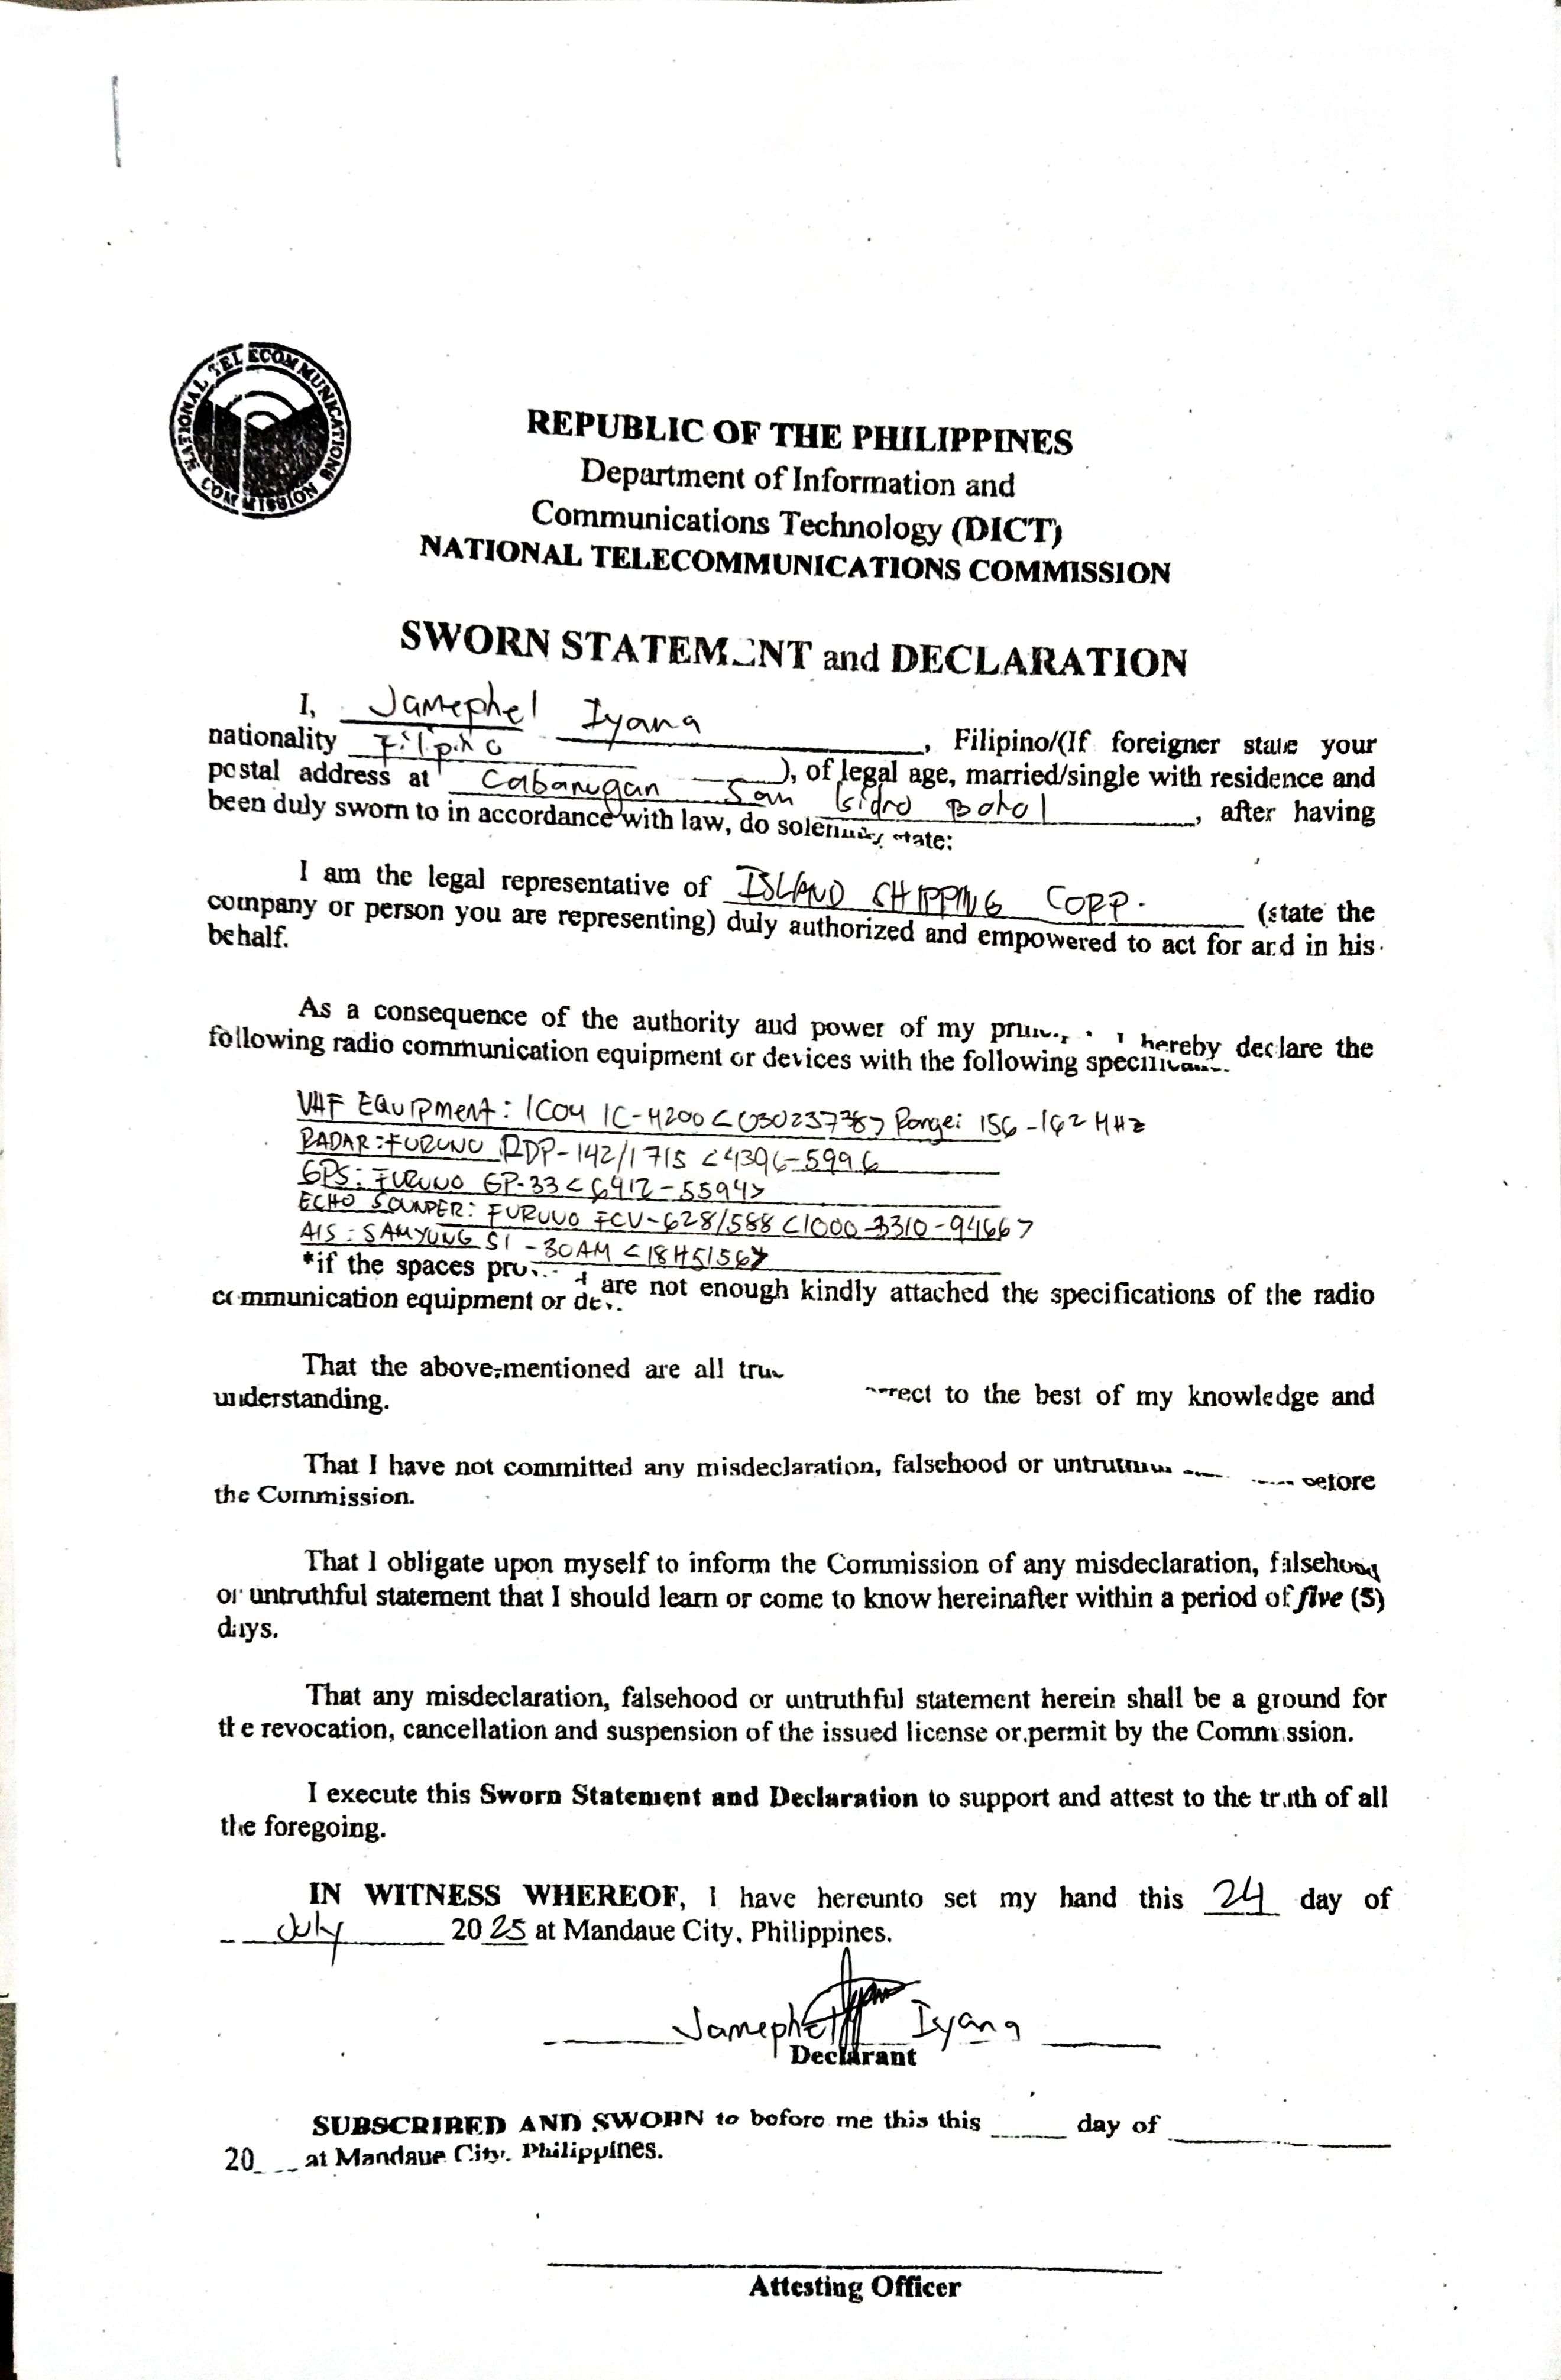 NATIONAL TELECOMMUNICATIONS COMMISSION
REPUBLIC OF THE PHILIPPINES
Department of Information and
Communications Technology (DICT)
NATIONAL TELECOMMUNICATIONS COMMISSION
SWORN STATEMENT and DECLARATION
I, Jamephel Iyana, Filipino/(If foreigner state your
nationality Filipino), of legal age, married/single with residence and
postal address at Cabanugan San Isidro Bohol, after having
been duly sworn to in accordance with law, do solemnly state:
I am the legal representative of ISLAND SHIPPING CORP. (state the
company or person you are representing) duly authorized and empowered to act for and in his
behalf.
As a consequence of the authority and power of my I hereby declare the
following radio communication equipment or devices with the following
VHF EQUIPMENT: ICOM IC-M200 <030237387> Range: 156-162 MHz
RADAR: FURUNO RDP-142/1715 <4396-5996
GPS: FURUNO GP-33 <6912-5594>
ECHO SOUNDER: FURUNO FCV-628/588 <1000-3310-94667
AIS: SAMYUNG SI-30AM <18H5156>
*if the spaces are not enough kindly attached the specifications of the radio
communication equipment or
That the above-mentioned are all true to the best of my knowledge and
understanding.
That I have not committed any misdeclaration, falsehood or before
the Commission.
That I obligate upon myself to inform the Commission of any misdeclaration, falsehood
or untruthful statement that I should learn or come to know hereinafter within a period of five (5)
days.
That any misdeclaration, falsehood or untruthful statement herein shall be a ground for
the revocation, cancellation and suspension of the issued license or permit by the Commission.
I execute this Sworn Statement and Declaration to support and attest to the truth of all
the foregoing.
IN WITNESS WHEREOF, I have hereunto set my hand this 24 day of
July 2025 at Mandaue City, Philippines.
Jamephel Iyana
Declarant
SUBSCRIBED AND SWORN to before me this this day of
20 at Mandaue City, Philippines.
Attesting Officer